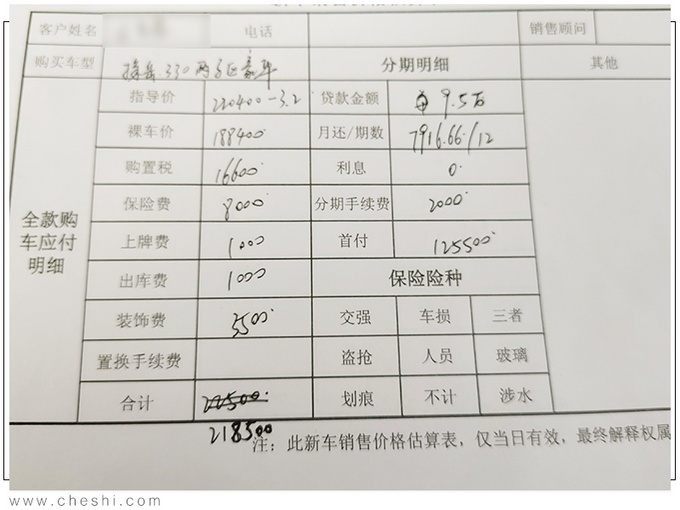 客户姓名 电话 销售顾问
购买车型 探岳 330 两驱豪华 分期明细 其他
全款购车应付明细
指导价 220400-3.2 贷款金额 9.5万
裸车价 188400 月还/期数 7916.66/12
购置税 16600 利息 0
保险费 8000 分期手续费 2000
上牌费 1000 首付 125500
出库费 1000 保险险种
装饰费 3500 交强 车损 三者
置换手续费 盗抢 人员 玻璃
合计 划痕 不计 涉水
218500
注：此新车销售价格估算表，仅当日有效，最终解释权属
www.cheshi.com